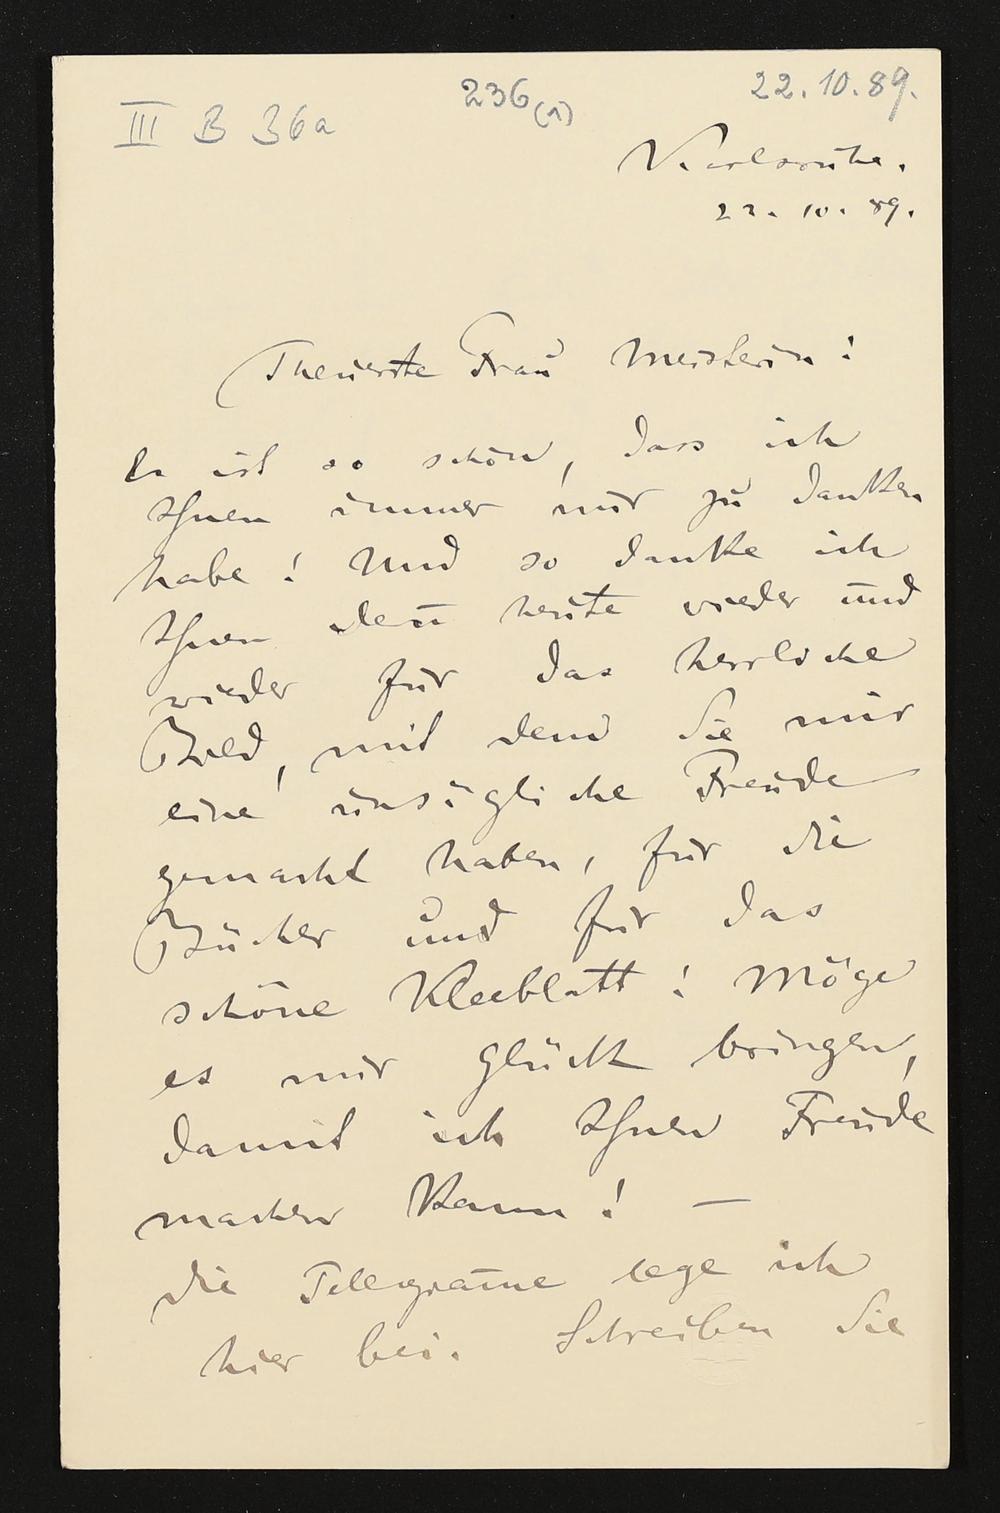 III B 36a
236(1)
22.10.89.
Karlsruhe.
22. 10. 89.
Theuerste Frau Meisterin!
Es ist so schön, dass ich
Ihnen immer nur zu danken
habe! Und so danke ich
Ihnen deñ heute wieder und
wieder für das herrliche
Bild, mit dem Sie mir
eine unsägliche Freude
gemacht haben, für die
Bücher und für das
schöne Kleeblatt! Möge
es mir Glück bringen,
damit ich Ihnen Freude
machen kann! —
Die Telegram̄e lege ich
hier bei. Schreiben Sie